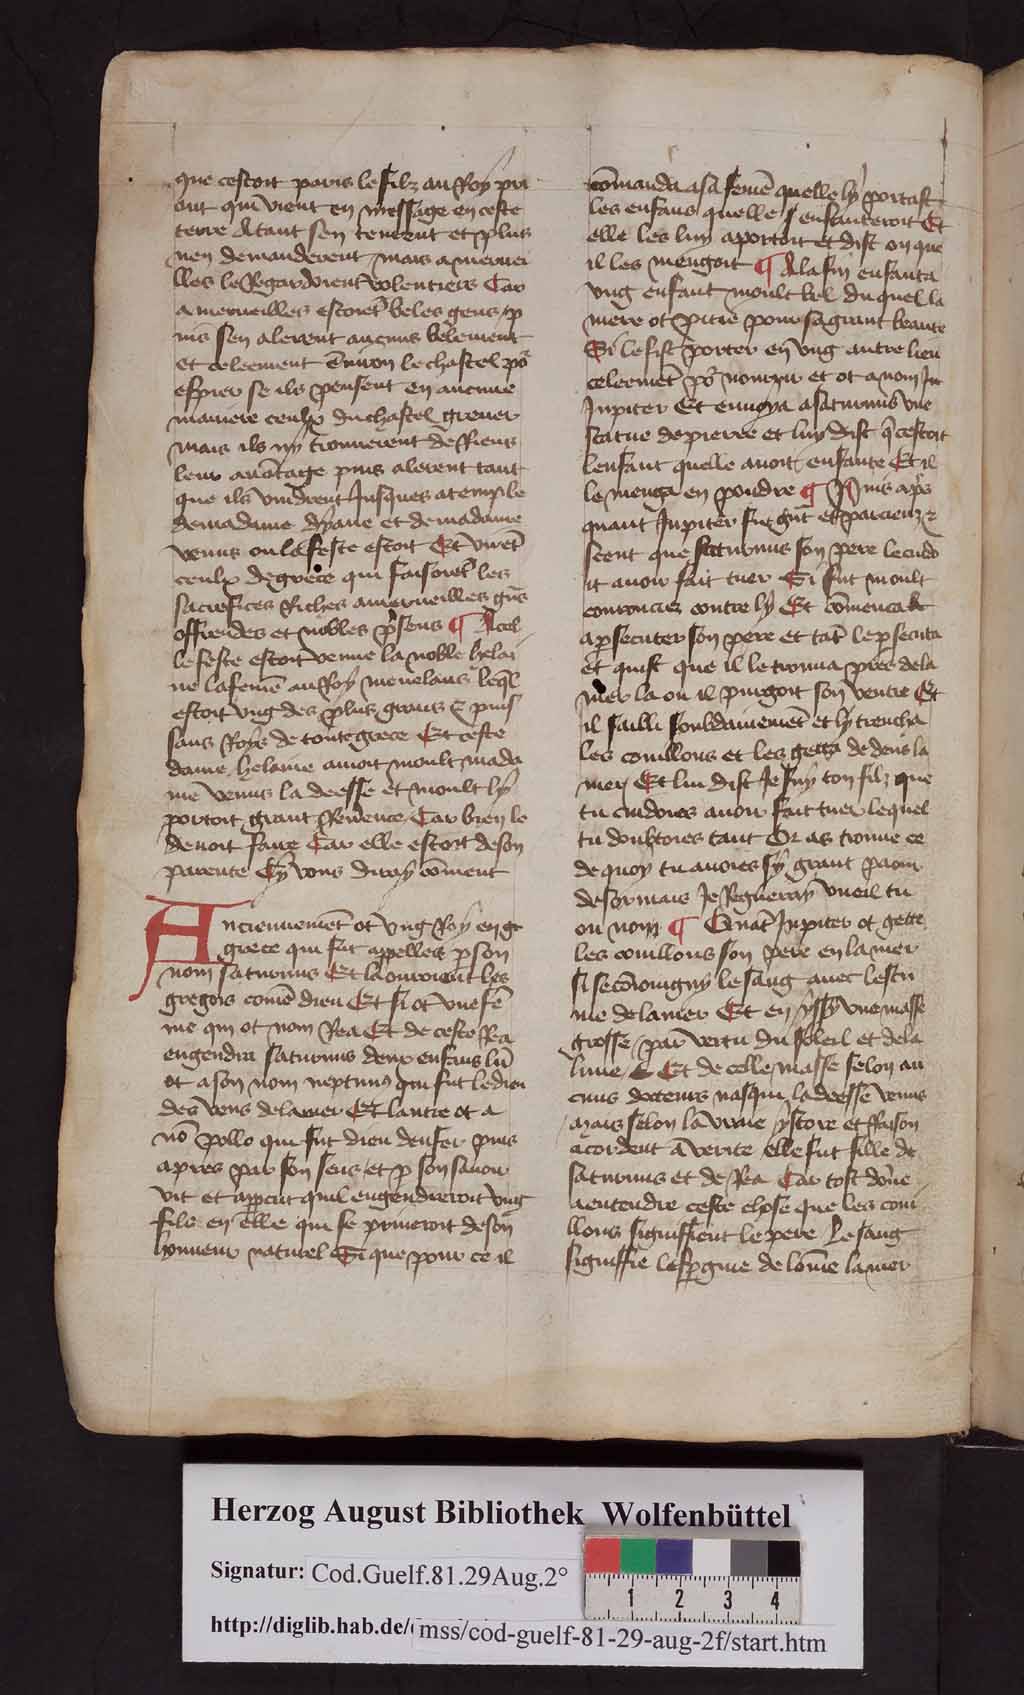 que cestoit paris le filz au Roy pri
ant qui vient en message en ceste
terre Atant sen teurent et plus
nen demanderent mais a mervei
lles le Regardoient volentiers Car
a merveilles estoiēt beles gens / p
uis sen alerent aucuns belement
et celeement ēniron le chastel po᷑
espier se ils peussent en aucune
maniere ceulx du chastel grever
mais ils ny trouverent de Riens
leur avātage puis alerent tant
que ils vindrent Jusques a temple
de madame dyane et de madame
venus ou la feste estoit Et virēt
ceulx de grece qui faisoiēt les
sacrefices Riches a merveilles gñs
offrendes et nobles p̃sens ¶ Acel
le feste estoit venue la noble helai
ne la femē au Roy menelaus leq̄l
estoit ung des plus grans & puis
sans Roys de toute grece Et ceste
dame helaine avoit moult mada
me venus la deesse et moult ly
portoit grant Reverēce Car bien le
devoit faire Car elle estoit de son
parente Cy vous diray cōment
Anciennemēt ot ung Roy en gr
grece qui fut appelles p son
nom saturnus Et laouroient les
gregois comē dieu Et si ot une fē
me qui ot nom Rea Et de ceste Rea
engendra saturnus deux enfans lū
ot a son nom neptunꝰ qui fut le dieu
des vens de la mer Et lautre ot a
nō pollo qui fut dieu denfer puis
apres par son sens et p son savoir
vit et appcut quil engendreroit ung
filz en elle qui se priveroit de son
honneur naturel Si que pour ce il
cōmanda a sa femē quelle ly portast
les enfans quelle enfanteroit Et
elle les luy aportoit et dist on que
il les mengoit ¶ A la fin enfanta
ung enfant moult bel du quel la
mere ot pitie pour sa grant beaute
Si le fist porter en ung autre lieu
celeemēt po᷑ nourrir et ot a nom Ju
Jupiter Et envoya a saturnus une
statue de pierre et luy dist q̄ cestoit
lenfant quelle avoit enfante Et il
le menga en poudre ¶ Puis ap̃s
quant Jupiter fut gñt et parcreuz &
sceut que saturnus son pere le cuid
it avoir fait tuer Si fut moult
couroucies contre ly Et cōmenca le
a psecuter son pere et tāt le psecuta
et quist que il le trouva pres de la
mer la ou il purgoit son ventre Et
il sailli soubdainemēt et ly trencha
les couillons et les getta dedens la
mer Et lui dist Je suy ton filz que
tu cuidoies avoir fait tuer lequel
tu doubtoies tant Or as trouve ce
de quoy tu avoies sy grant paour
desormais Je Regneray vueil tu
ou nom ¶ Quāt Jupiter ot gette
les couillons son pere en la mer
si secōioingny le sang avec lescu
me de la mer Et en yssy une masse
grosse par vertu du soleil et de la
lune Et de celle masse selon au
cuns docteurs nasqui la deesse venus
Mais selon la vraie ystore et Raison
acordent a verite elle fut fille de
saturnus et de Rea Car tost dōne
a entendre ceste chose que les coui
llons signiffient le pere Le sang
signiffie lespgme de lōme la mer
Herzog August Bibliothek Wolfenbüttel
Signatur: Cod.Guelf.81.29Aug.2°
1 2 3 4
http://diglib.hab.de/ mss/cod-guelf-81-29-aug-2f/start.htm